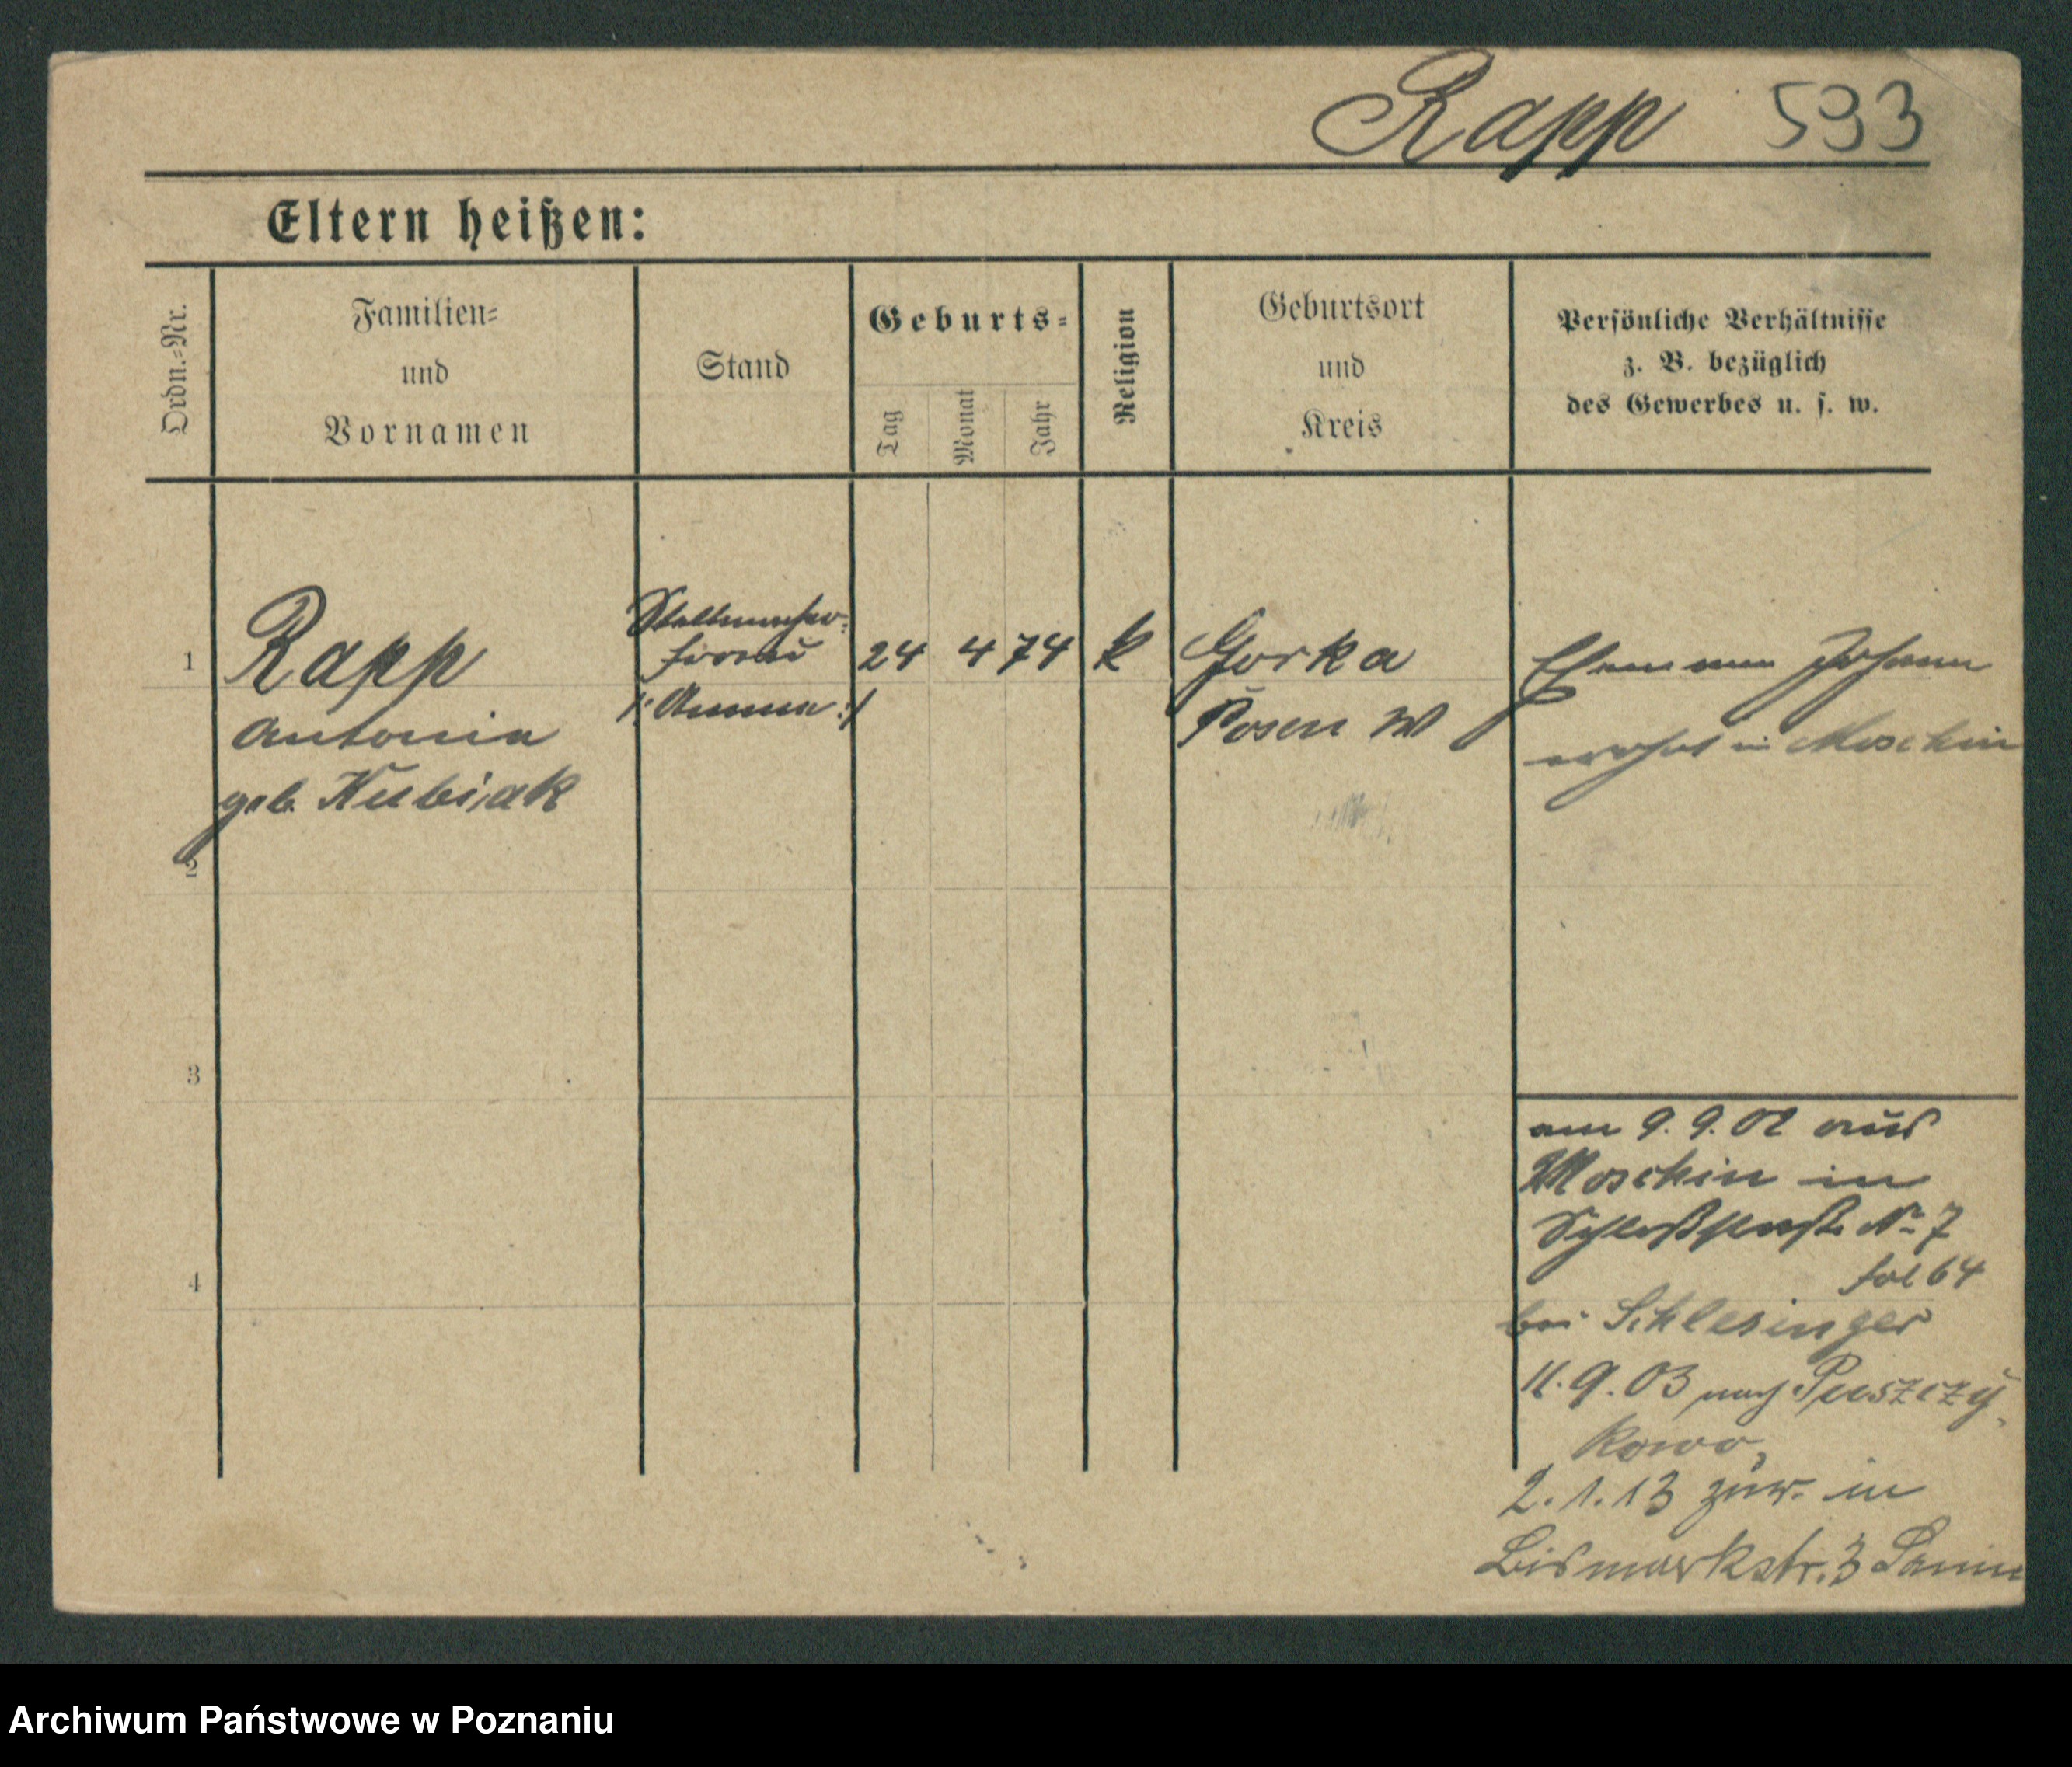 Rapp 593
Eltern heißen:
Ordn.-Nr.
Familien-
und
Vornamen
Stand
Geburts-
Tag
Monat
Jahr
Religion
Geburtsort
und
Kreis
Persönliche Verhältnisse
z. B. bezüglich
des Gewerbes u. s. w.
1
Rapp
Antonia
geb. Kubiak
Stellmacher-
frau
/: Amme :/
24 4 74
k
Gorka
Posen W
Ehemann Johann
wohnt in Moschin
2
3
4
am 9. 9. 02 aus
Moschin in
Schloßstr. No 7
fol 64
bei Schlesinger
11. 9. 03 nach Puszczy-
kowo,
2. 1. 13 zuw. in
Bismarkstr. 3
Archiwum Państwowe w Poznaniu